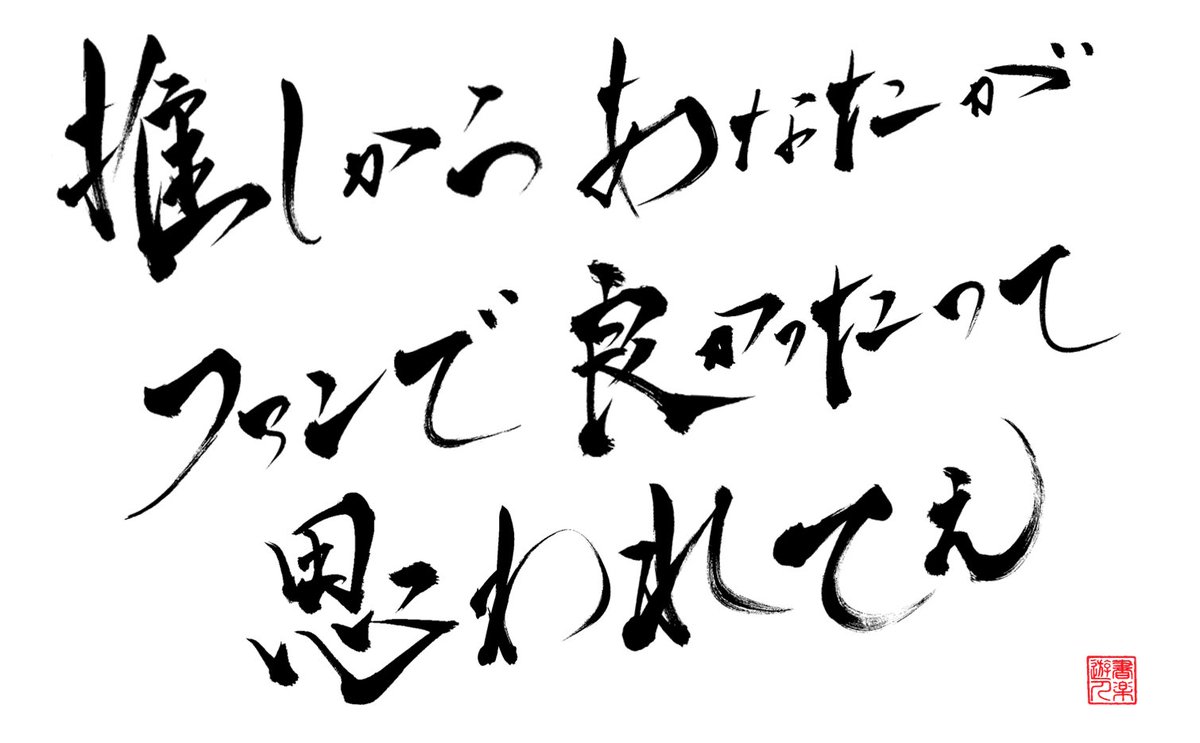 推しからあなたが
ファンで良かったって
思われてえ
書楽
遊人